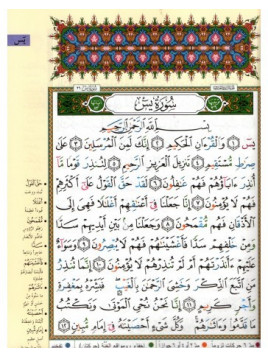 يس
سُورَةُ يسٓ
بِسْمِ اللَّهِ الرَّحْمَٰنِ الرَّحِيمِ
يسٓ ١ وَالْقُرْءَانِ الْحَكِيمِ ٢ إِنَّكَ لَمِنَ الْمُرْسَلِينَ ٣ عَلَىٰ
صِرَٰطٍ مُّسْتَقِيمٍ ٤ تَنزِيلَ الْعَزِيزِ الرَّحِيمِ ٥ لِتُنذِرَ قَوْمًا مَّا
أُنذِرَ ءَابَاؤُهُمْ فَهُمْ غَٰفِلُونَ ٦ لَقَدْ حَقَّ الْقَوْلُ عَلَىٰ أَكْثَرِهِمْ
فَهُمْ لَا يُؤْمِنُونَ ٧ إِنَّا جَعَلْنَا فِي أَعْنَٰقِهِمْ أَغْلَٰلًا فَهِيَ إِلَى
الْأَذْقَانِ فَهُم مُّقْمَحُونَ ٨ وَجَعَلْنَا مِنۢ بَيْنِ أَيْدِيهِمْ سَدًّا
وَمِنْ خَلْفِهِمْ سَدًّا فَأَغْشَيْنَٰهُمْ فَهُمْ لَا يُبْصِرُونَ ٩ وَسَوَاءٌ
عَلَيْهِمْ ءَأَنذَرْتَهُمْ أَمْ لَمْ تُنذِرْهُمْ لَا يُؤْمِنُونَ ١٠ إِنَّمَا تُنذِرُ
مَنِ اتَّبَعَ الذِّكْرَ وَخَشِيَ الرَّحْمَٰنَ بِالْغَيْبِ فَبَشِّرْهُ بِمَغْفِرَةٍ
وَأَجْرٍ كَرِيمٍ ١١ إِنَّا نَحْنُ نُحْيِ الْمَوْتَىٰ وَنَكْتُبُ
مَا قَدَّمُوا وَءَاثَٰرَهُمْ وَكُلَّ شَيْءٍ أَحْصَيْنَٰهُ فِي إِمَامٍ مُّبِينٍ ١٢